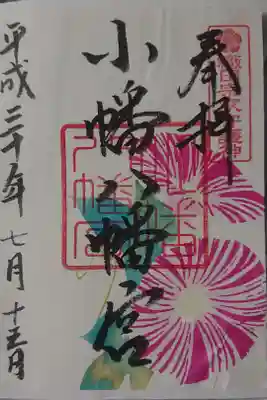 奉拝
小幡八幡宮
平成三十年七月十五日